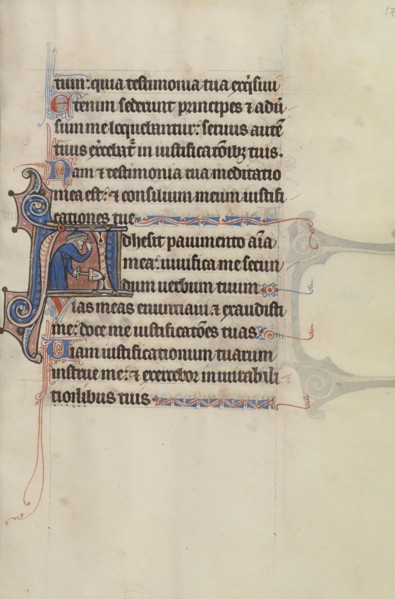 tuum: quia testimonia tua exq̄siui
Etenim sederunt principes ⁊ adū
sum me loquebantur: seruus autē
tuus exercebat᷑ in iustificatōibꝫ tuis.
Nam ⁊ testimonia tua meditatio
mea est: ⁊ consilium meum iustifi
cationes tue
Adhesit pauimento aīa
mea: uiuifica me secun
dum uerbum tuum
Vias meas enunciaui ⁊ exaudisti
me: doce me iustificatōes tuas.
Uiam iustificationum tuarum
instrue me: ⁊ exercebor in mirabili
tuis